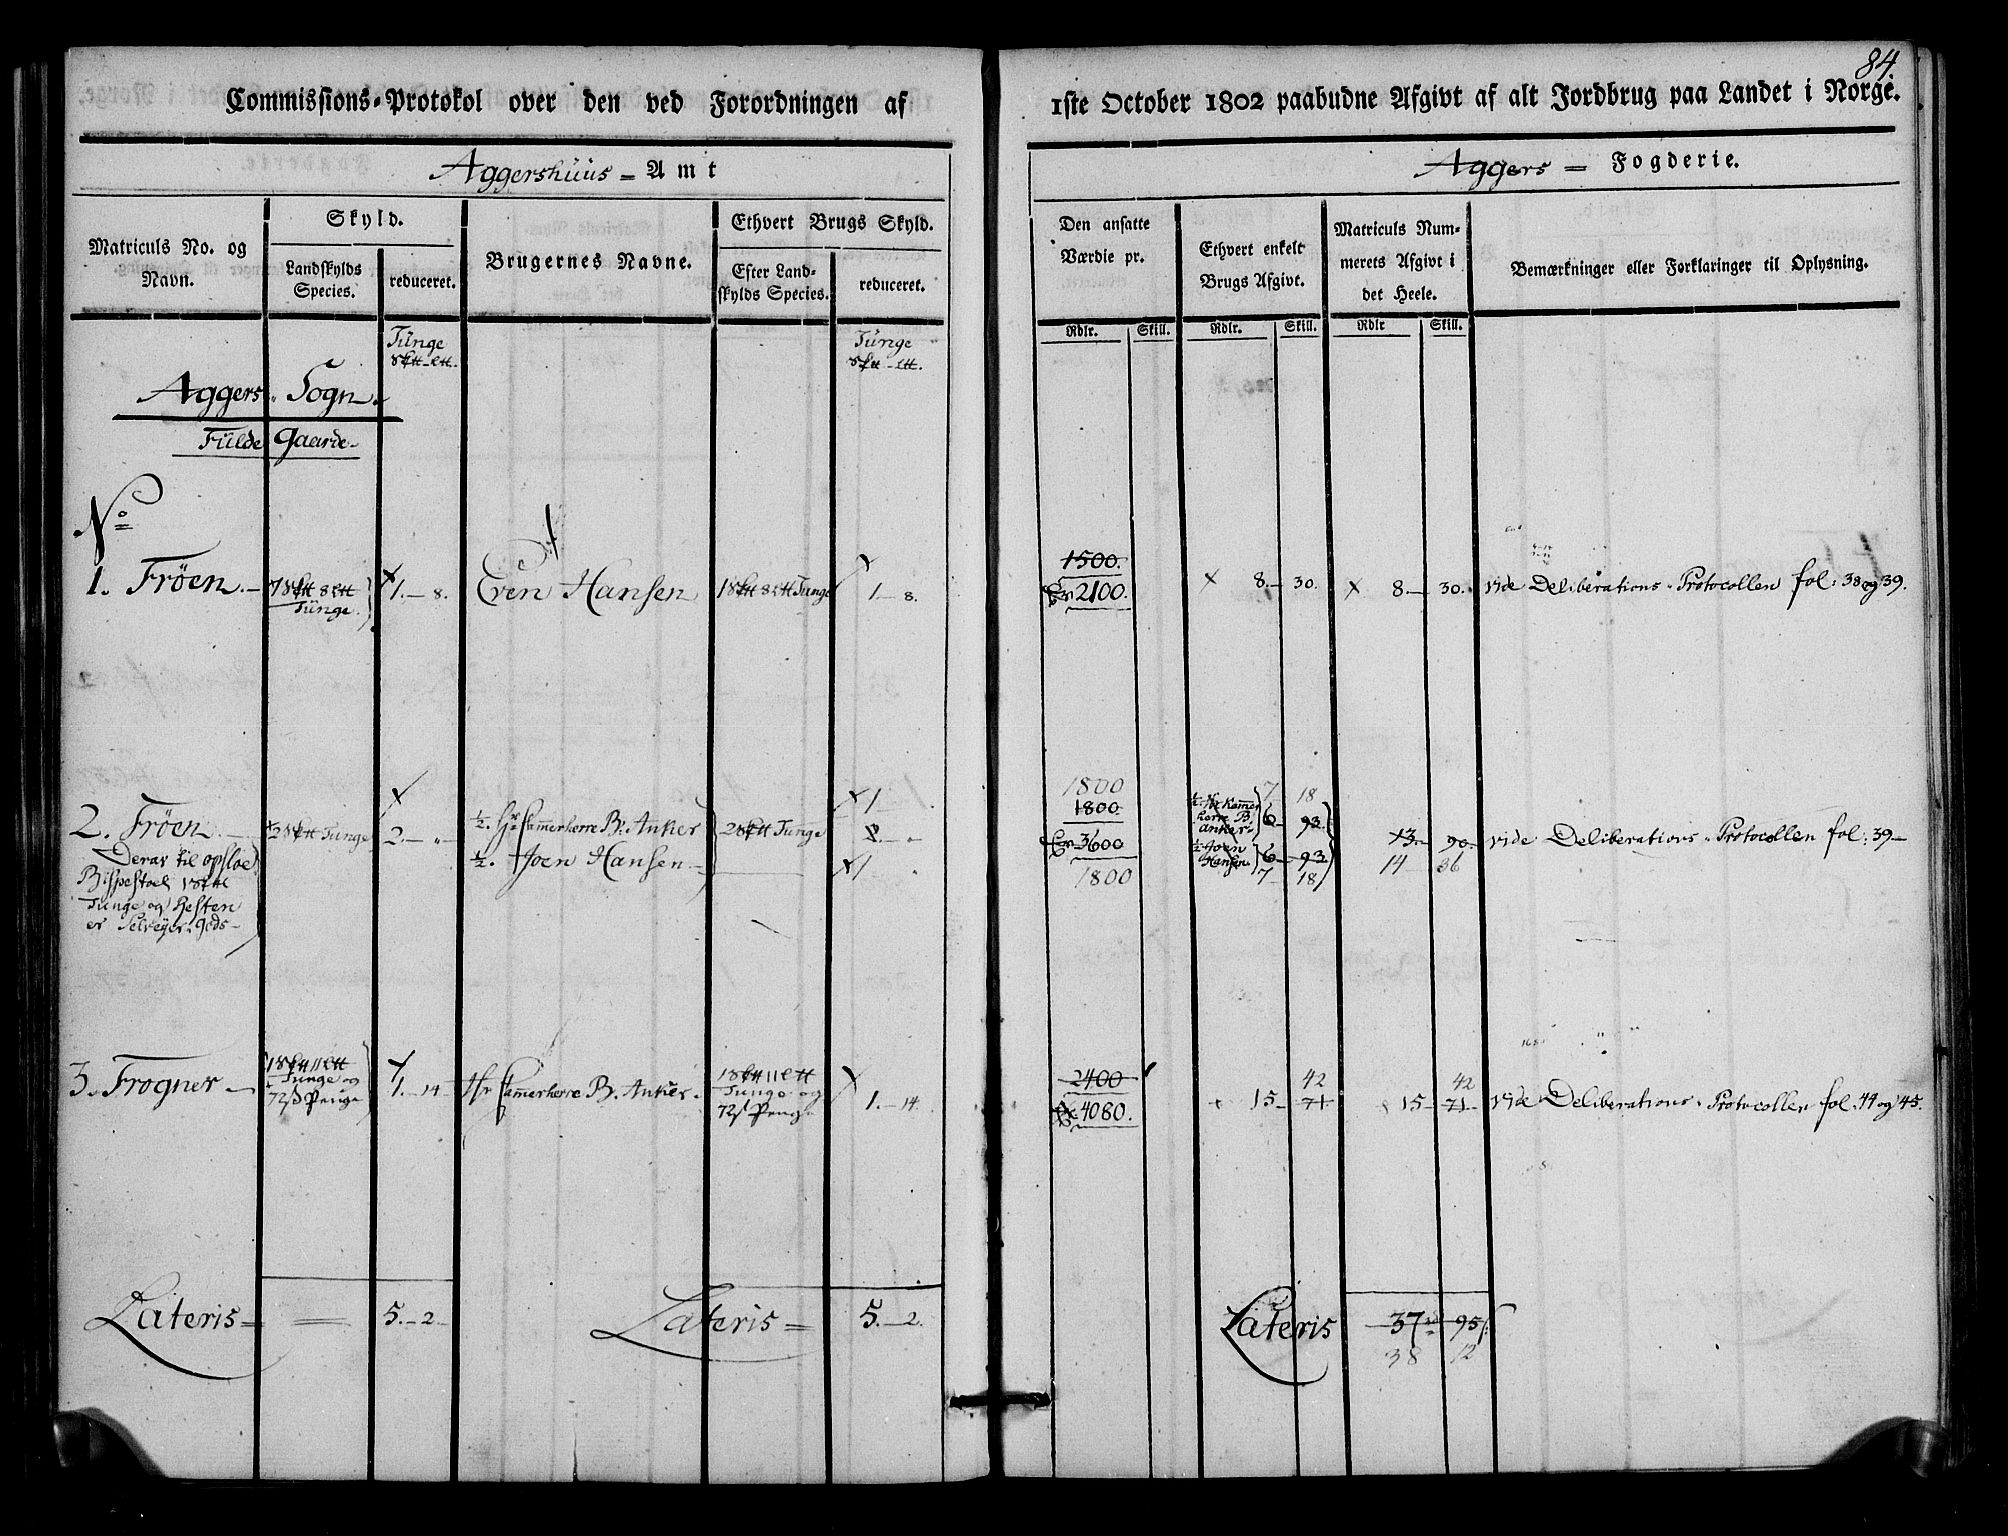 84.
Commissions-Protokol over den ved Forordningen af 1ste October 1802 paabudne Afgivt af alt Jordbrug paa Landet i Norge.
Aggershuus = Amt
Aggers = Fogderie.
Matriculs No. og Navn.
Skyld.
Landskylds Species.
reduceret.
Brugernes Navne.
Ethvert Brugs Skyld.
Efter Landskylds Species.
reduceret.
Den ansatte Værdie pr.
Ethvert enkelt Brugs Afgivt.
Matriculs Nummerets Afgivt i det Heele.
Bemærkninger eller Forklaringer til Oplysning.
Rdlr. Skill. Rdlr. Skill. Rdlr Skill.
Tunge Tunge
Aggers Sogn.
Fulde Gaarde
No
1. Frøen. Tunge. 1. 8. Even Hansen Tunge 1 8.
1500.
2100. 8. 30. 8 30. vide Deliberations Protocollen fol: 38 og 39.
2. Frøen Tunge 2. ½. Hr Cammerherre B: Anker Tunge 1 2
½. Joen Hansen 1
Derav til opsloe
Bispestoel
Tunge og Resten
er Selveyer Gods
1800 7 18
1800 ½ Hr Kammerherre B. Anker 6 93
3600 ½ Joen Hansen 6 93 13 90 vide Deliberations Protocollen fol: 39
1800 7 18 14 36
3. Frogner Tunge og 72 ß Penge 1. 14 Hr Cammerherre B. Anker. Tunge og 72 ß Penge 1. 14.
2400 42 42
4080. 15 71 15 71 vide Deliberations Protocollen fol. 44 og 45.
Lateris 5. 2 Lateris 5. 2.
Lateris 37 95
38 12